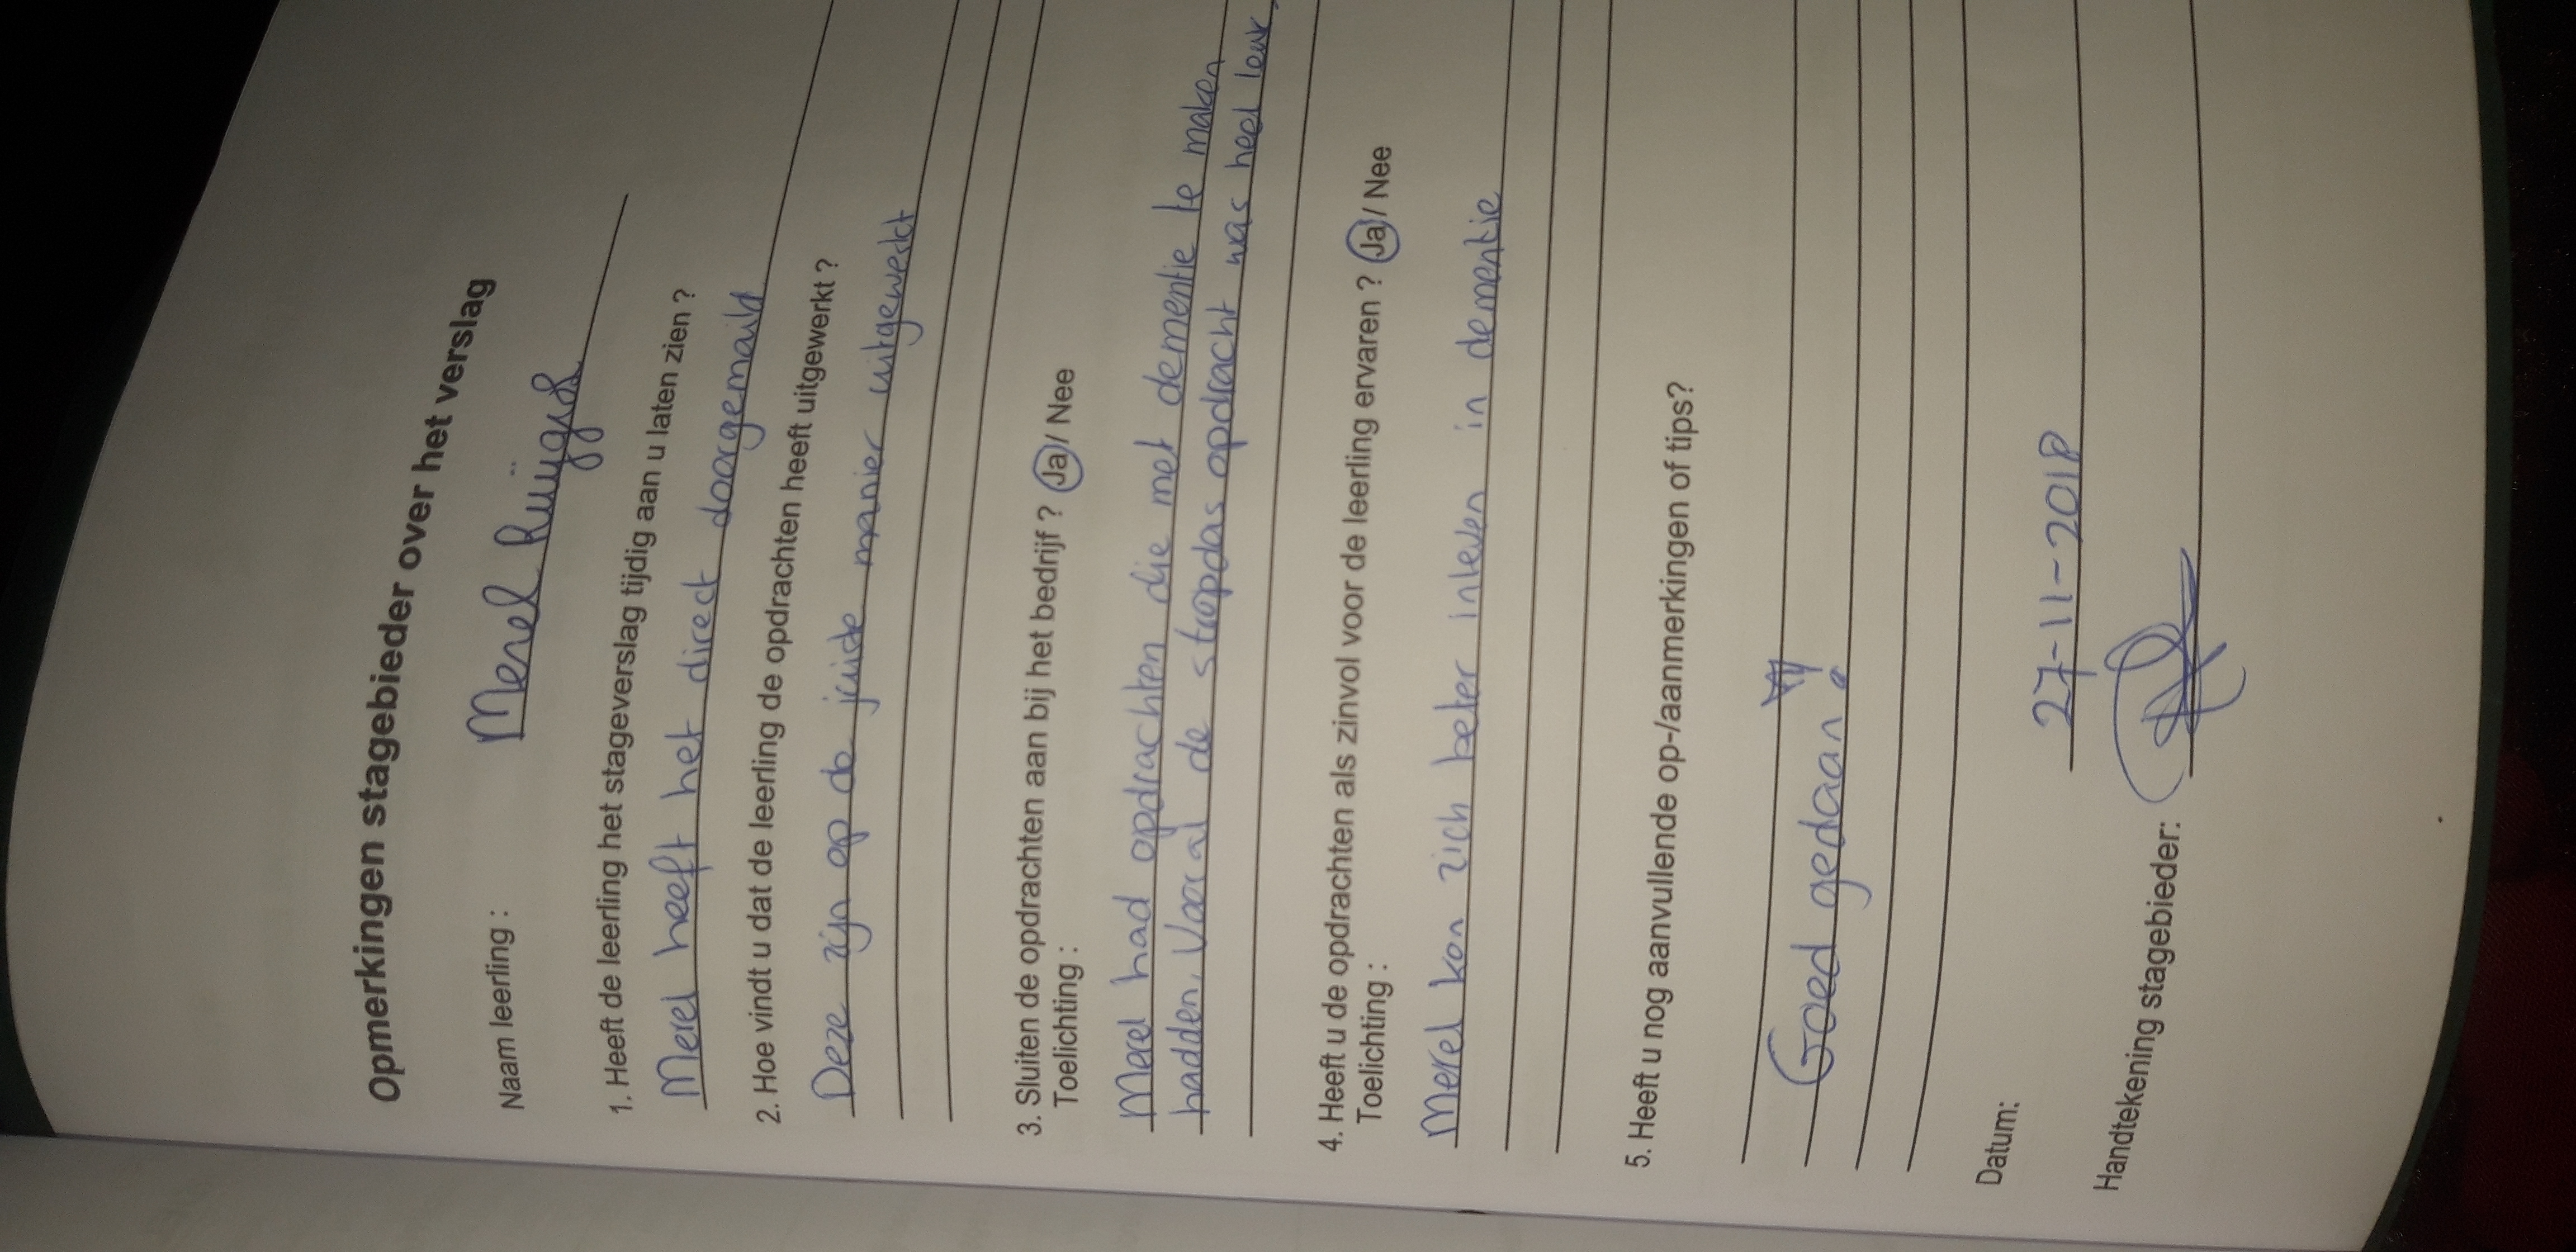 Opmerkingen stagebieder over het verslag
Naam leerling : Merel
1. Heeft de leerling het stageverslag tijdig aan u laten zien ?
Merel heeft het direct doorgemaild
2. Hoe vindt u dat de leerling de opdrachten heeft uitgewerkt ?
Deze zijn op de juiste manier uitgewerkt
3. Sluiten de opdrachten aan bij het bedrijf ? Ja / Nee
Toelichting :
Merel had opdrachten die met dementie te maken
hadden. Vooral de stropdas opdracht was heel leuk.
4. Heeft u de opdrachten als zinvol voor de leerling ervaren ? Ja / Nee
Toelichting :
Merel kon zich beter inleven in dementie
5. Heeft u nog aanvullende op-/aanmerkingen of tips?
Goed gedaan!
Datum: 27-11-2018
Handtekening stagebieder: